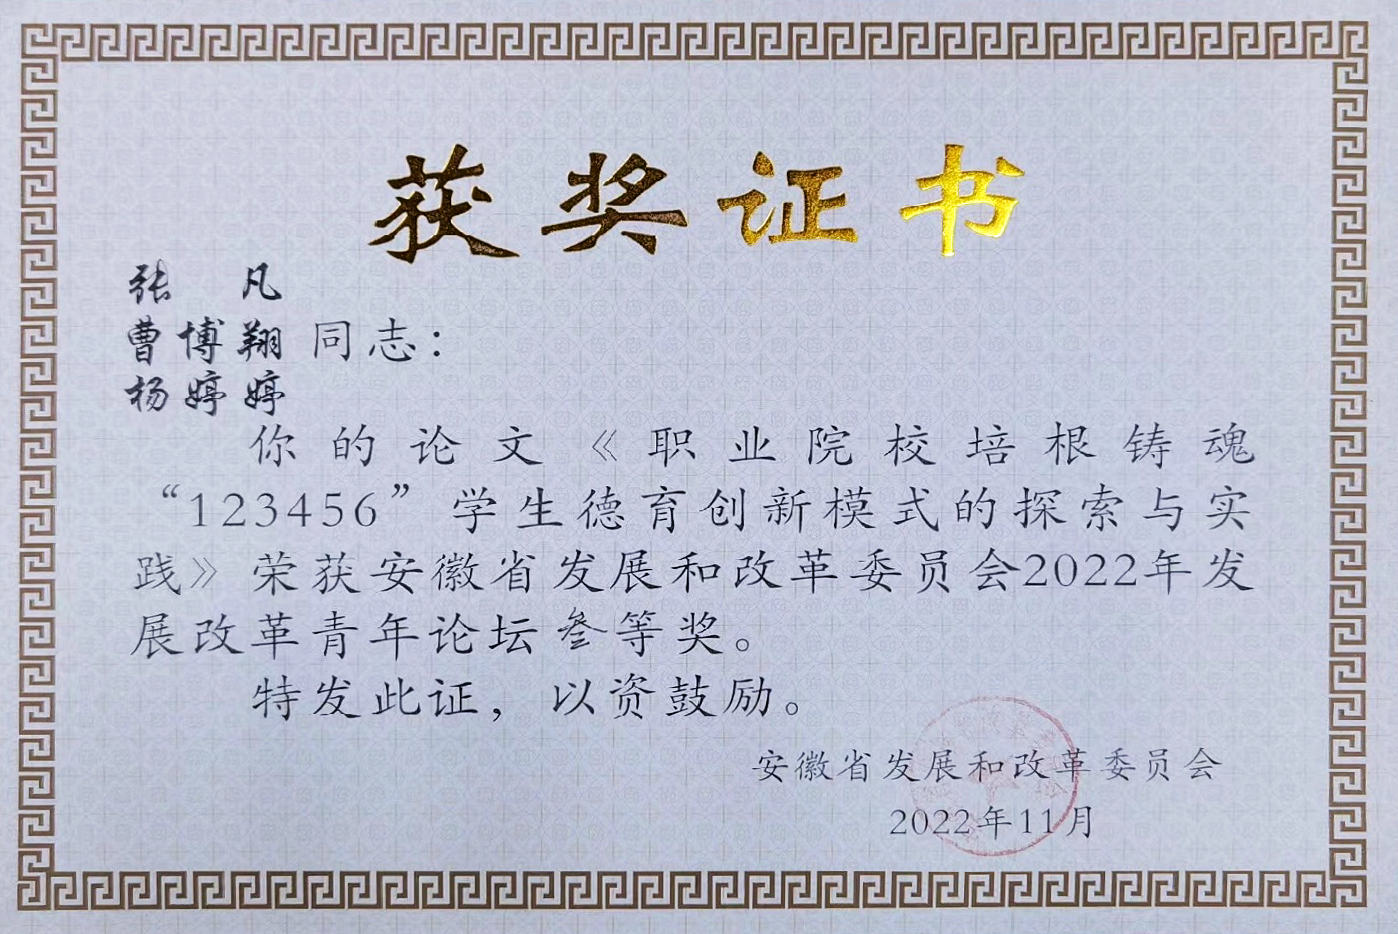 获奖证书
张 凡
曹博翔 同志：
杨婷婷
你的论文《职业院校培根铸魂
“123456”学生德育创新模式的探索与实
践》荣获安徽省发展和改革委员会2022年发
展改革青年论坛叁等奖。
特发此证，以资鼓励。
安徽省发展和改革委员会
2022年11月